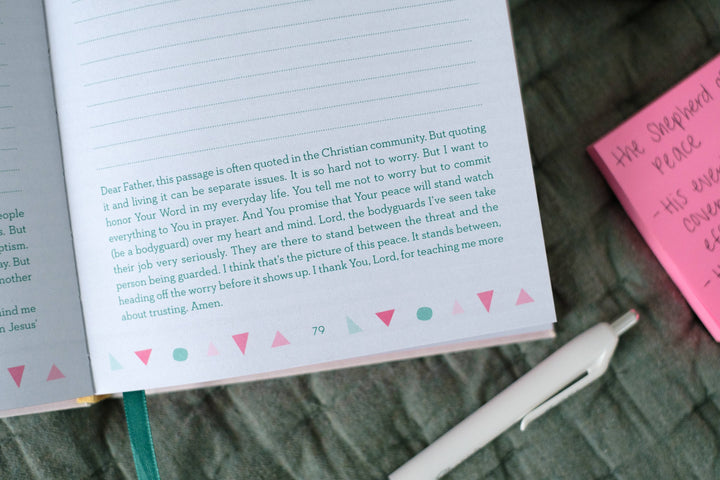 eople
s. But
ptism.
ay. But
nother
ind me
n Jesus'
Dear Father, this passage is often quoted in the Christian community. But quoting
it and living it can be separate issues. It is so hard not to worry. But I want to
honor Your Word in my everyday life. You tell me not to worry but to commit
everything to You in prayer. And You promise that Your peace will stand watch
(be a bodyguard) over my heart and mind. Lord, the bodyguards I've seen take
their job very seriously. They are there to stand between the threat and the
person being guarded. I think that's the picture of this peace. It stands between,
heading off the worry before it shows up. I thank You, Lord, for teaching me more
about trusting. Amen.
79
the Shepherd of
peace
- His